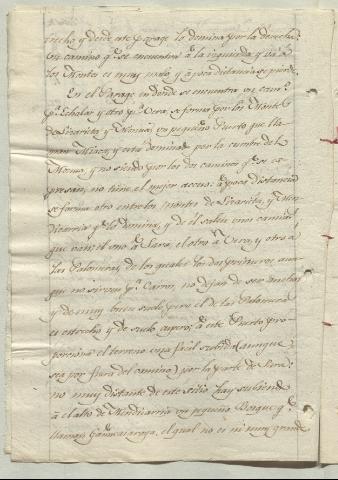 ancho, y desde este parage le domina por la derecha
un camino qe. se encuentra á la izquierda y vá á
los Montes es muy malo y á poca distancia se pierde.
En el Parage en donde se encuentra un cami-
pa. Echalar y otro pa. Vera, se forma por los Montes
de Sicarieta y un pequeño Puerto que lla-
man y esta domina por la cumbre del
y no siendo por los dos caminos qe. se es-
presan, no tiene el mejor acceso: á poca distancia
se forma otro entre los montes de Sicarieta, y Men-
dicarria qe. le domina, y de él salen unos caminos
que van, el uno á Sara, el otro á Vera, y otro á
las Palomeras, de los quales los dos primeros, aun-
que no sirven pa. Carros, no dejan de ser anchos
y de muy buen suelo, pero el de las Palomeras
es estrecho y de suelo aspero; á este Puerto pro-
porciona el terreno una facil subida (aunque
sea por fuera del camino) por la parte de Sara:
no muy distante de este sitio hay subiendo
á el alto de Mendicarria un pequeño Bosque qe.
llaman el qual no es ni muy grande